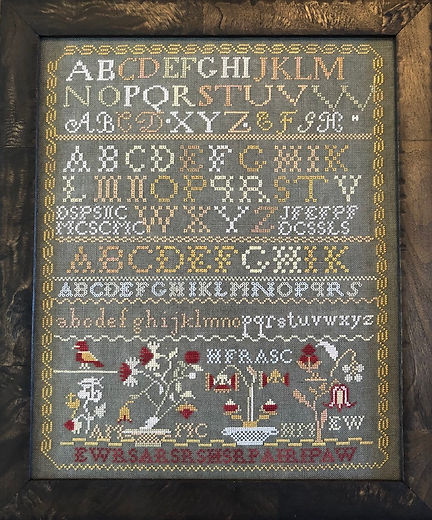 ABCDEFGHIJKLM
NOPQRSTUVW
ABCD·XYZEFGH
ABCDEFGHIK
LMNOPQRSTV
DSPSIIC WXYZ JFEFPF
MCSCMC DCSSLS
ABCDEFGHIK
ABCDEFGHIKLMNOPQRS
abcdefghijklmnopqrstuvwxyz
HFRASC
AM MC HM EW